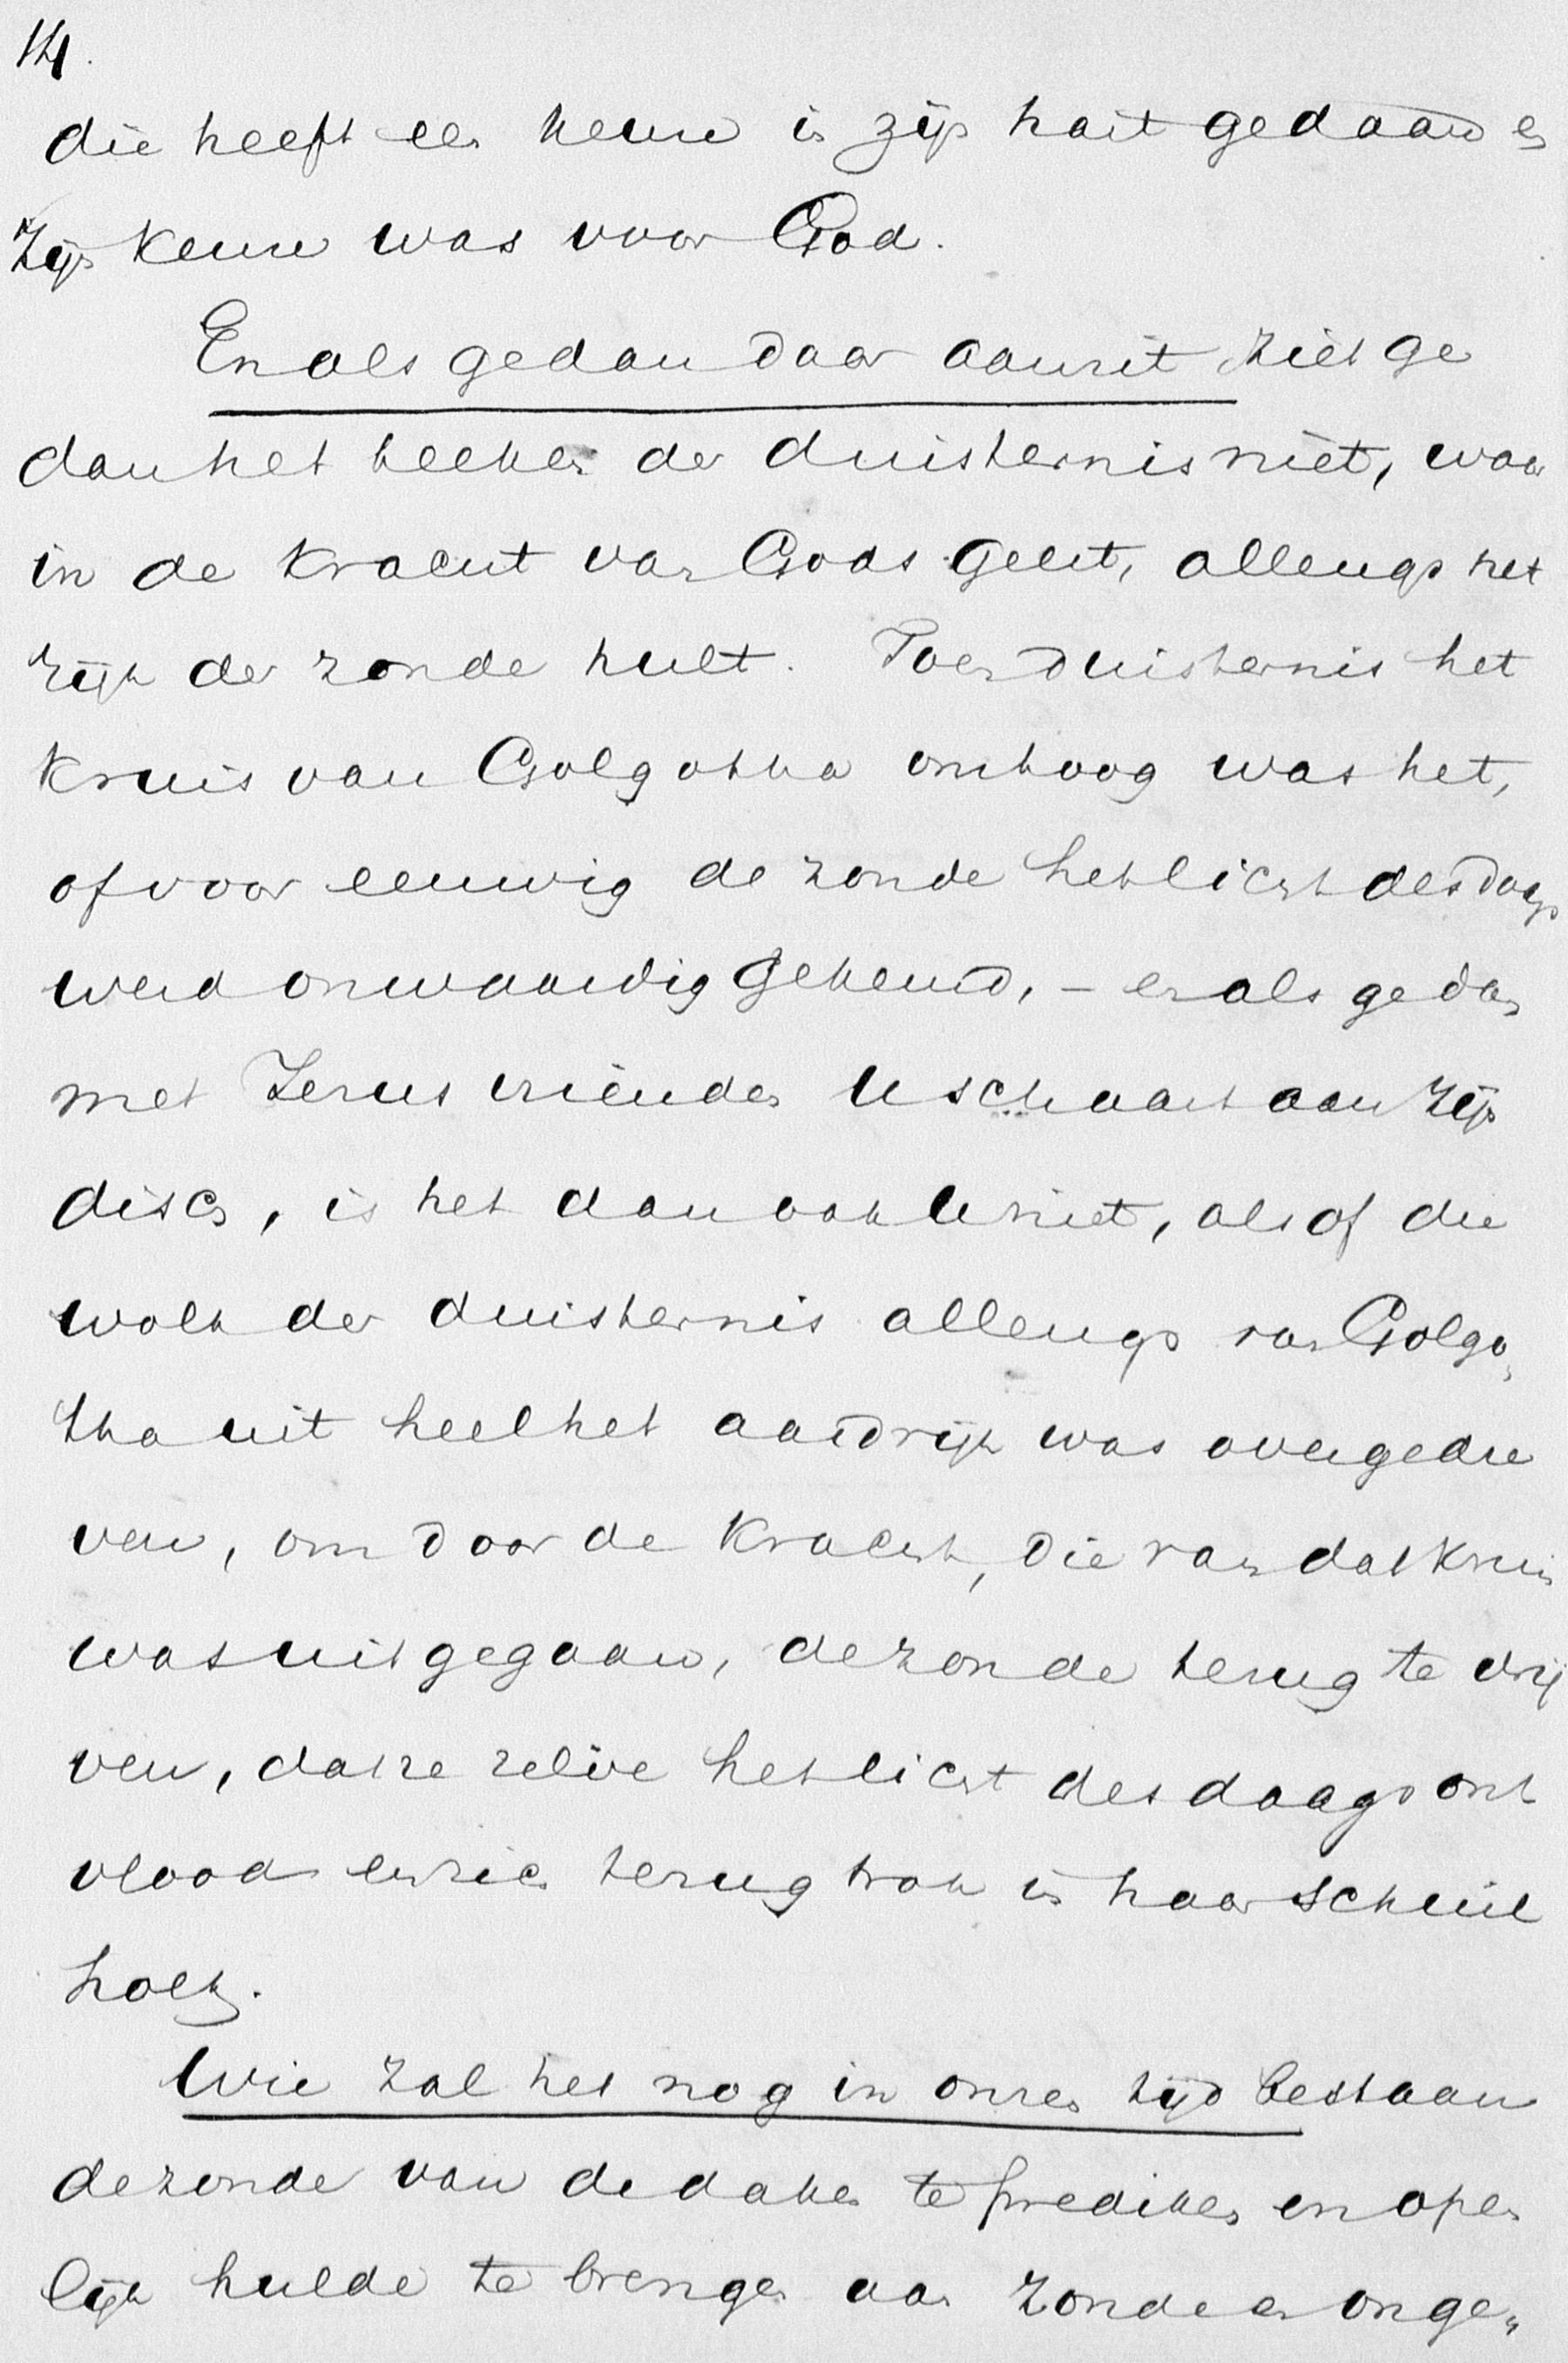 14.
die heeft een keure in zijn hart gedaan en
zijn keure was voor God.
En als ge dan daar aanzit ziet ge
dan het teeken der duisternis niet, waar
in de kracht van Gods geest, allengs het
rijk der zonde hult. Toen duisternis het
kruis van Golgotha omtoog was het,
of voor eeuwig de zonde het licht des daags
werd onwaardig gekeurd, - en als ge dan
met Jezus vrienden U schaart aan zijn
disch, is het dan ook U niet, alsof die
wolk der duisternis allengs van Golgo„
tha uit heel het aardrijk was overgedre
ven, om door de kracht, die van dat kruis
was uitgegaan, de zonde terug te drij
ven, dat ze zelve het licht des daags ont
vlood en zich terug trok in haar schuil
hoek.
Wie zal het nog in onzen tijd bestaan
de zonde van de daken te prediken en open
lijk hulde te brengen aan zonde en onge„